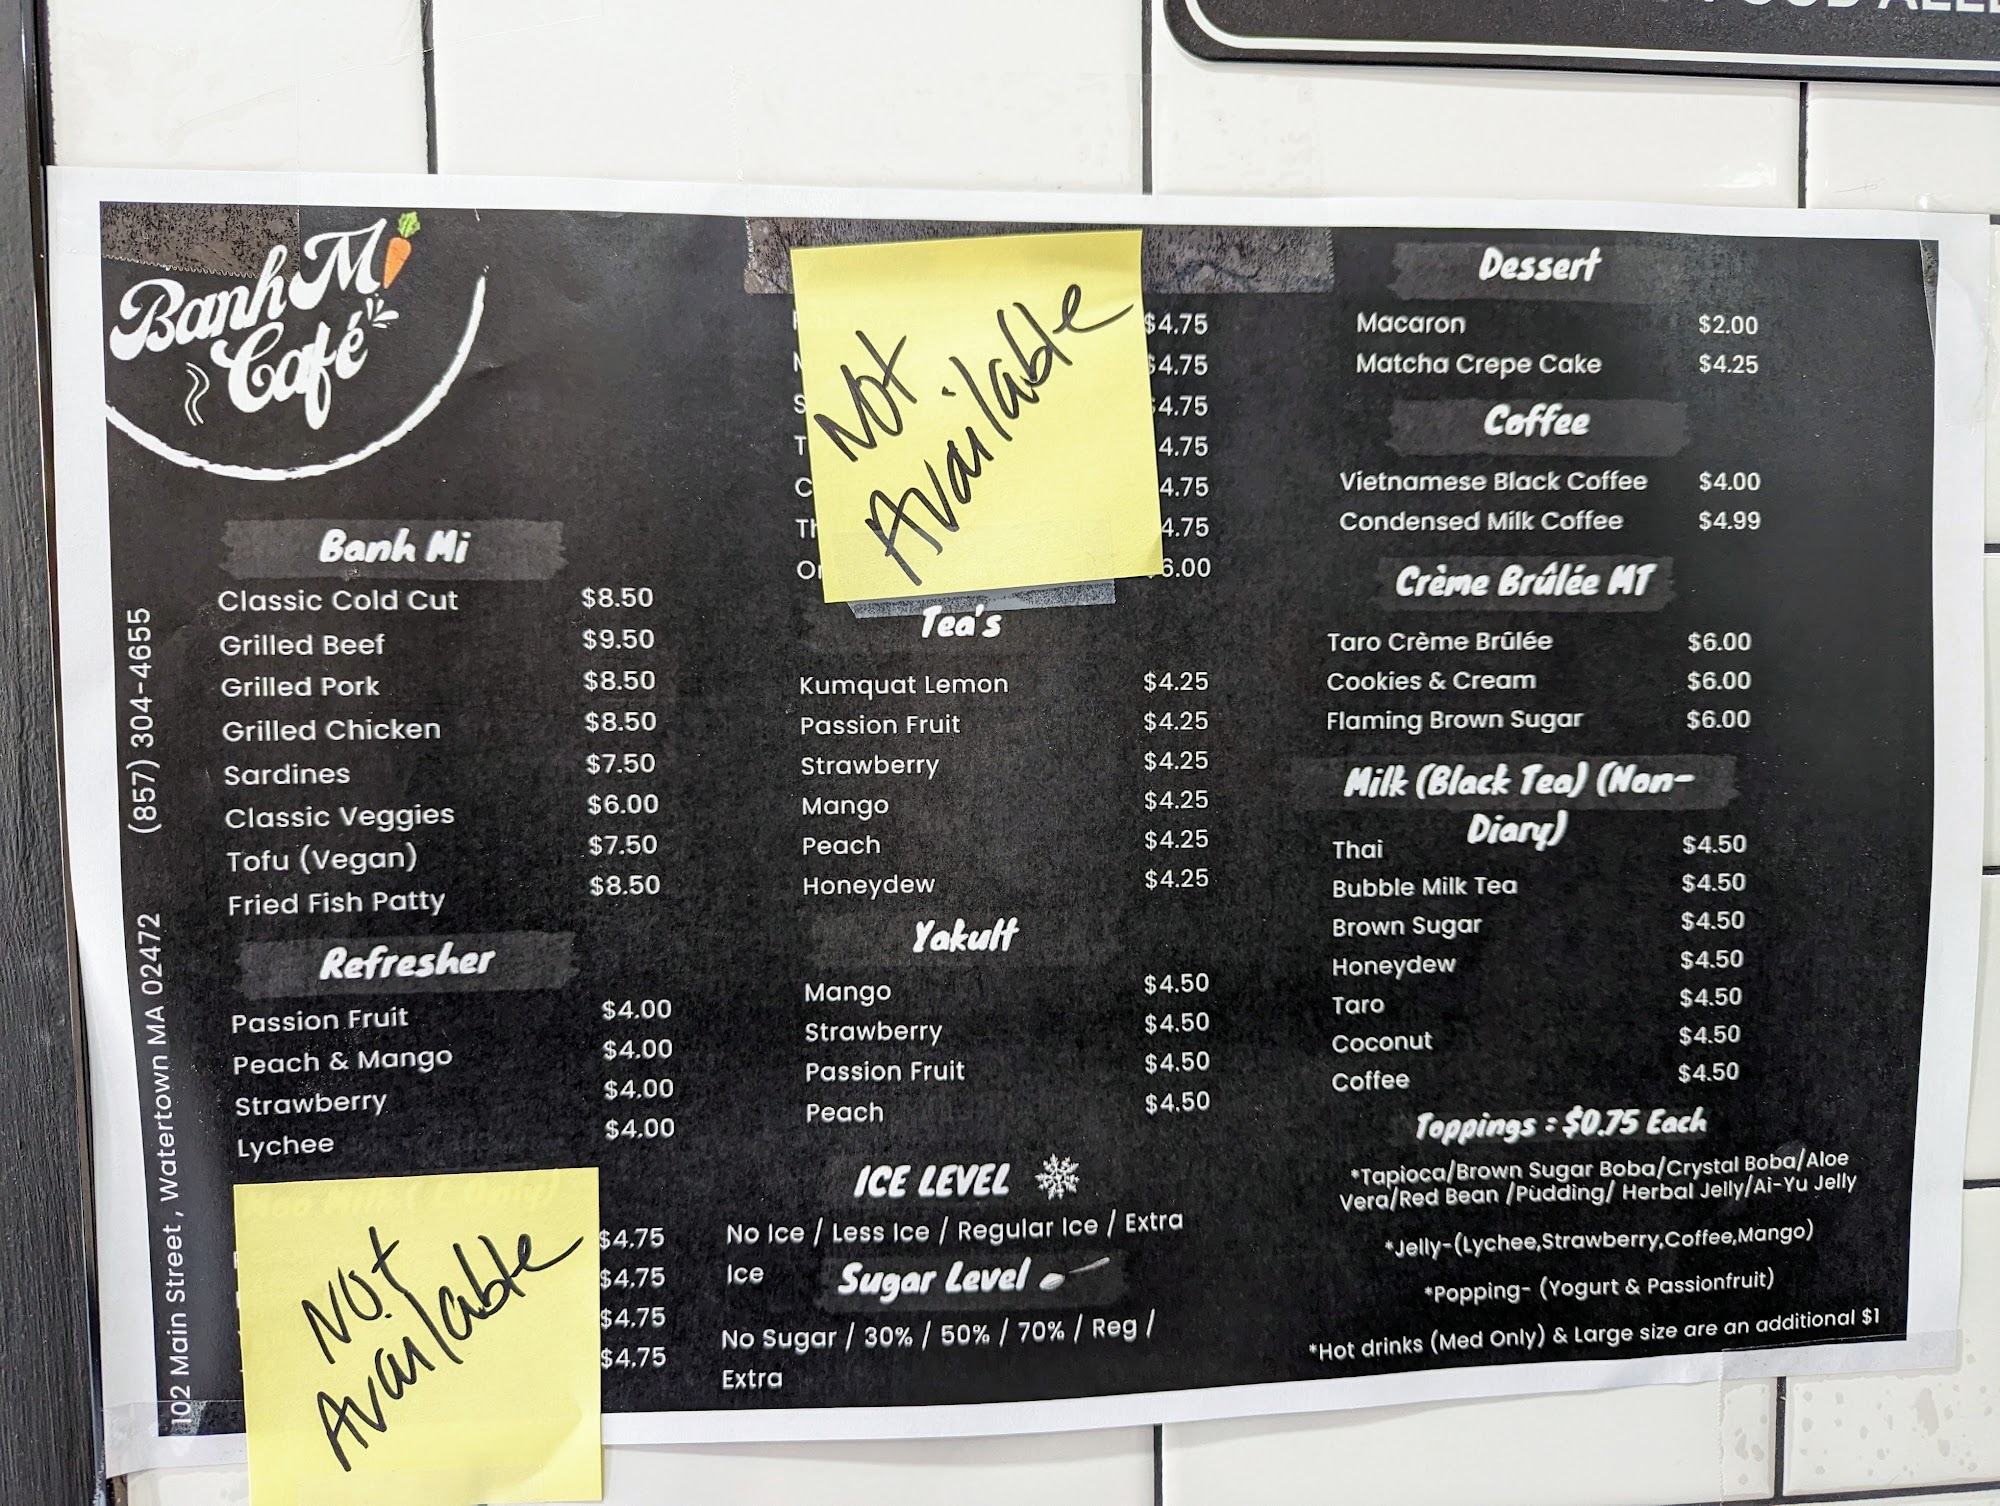 Banh Mi
Café
(857) 304-4655
102 Main Street , Watertown MA 02472
Banh Mi
Classic Cold Cut $8.50
Grilled Beef $9.50
Grilled Pork $8.50
Grilled Chicken $8.50
Sardines $7.50
Classic Veggies $6.00
Tofu (Vegan) $7.50
Fried Fish Patty $8.50
Refresher
Passion Fruit $4.00
Peach & Mango $4.00
Strawberry $4.00
Lychee $4.00
Not
Available
$4.75
$4.75
$4.75
$4.75
Not
Available
$4.75
$4.75
4.75
4.75
4.75
4.75
6.00
Tea's
Kumquat Lemon $4.25
Passion Fruit $4.25
Strawberry $4.25
Mango $4.25
Peach $4.25
Honeydew $4.25
Yakult
Mango $4.50
Strawberry $4.50
Passion Fruit $4.50
Peach $4.50
ICE LEVEL
No Ice / Less Ice / Regular Ice / Extra
Ice
Sugar Level
No Sugar / 30% / 50% / 70% / Reg /
Extra
Dessert
Macaron $2.00
Matcha Crepe Cake $4.25
Coffee
Vietnamese Black Coffee $4.00
Condensed Milk Coffee $4.99
Crème Brûlée MT
Taro Crème Brûlée $6.00
Cookies & Cream $6.00
Flaming Brown Sugar $6.00
Milk (Black Tea) (Non-
Diary)
Thai $4.50
Bubble Milk Tea $4.50
Brown Sugar $4.50
Honeydew $4.50
Taro $4.50
Coconut $4.50
Coffee $4.50
Toppings : $0.75 Each
*Tapioca/Brown Sugar Boba/Crystal Boba/Aloe
Vera/Red Bean /Pudding/ Herbal Jelly/Ai-Yu Jelly
*Jelly-(Lychee,Strawberry,Coffee,Mango)
*Popping- (Yogurt & Passionfruit)
*Hot drinks (Med Only) & Large size are an additional $1